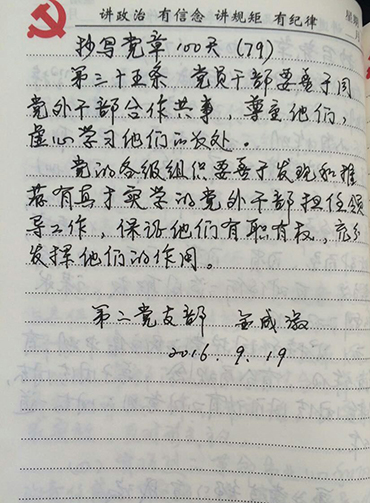 讲政治 有信念 讲规矩 有纪律
星期
月
抄写党章100天(79)
第三十五条 党员干部要善于同
党外干部合作共事，尊重他们，
虚心学习他们的长处。
党的各级组织要善于发现和推
荐有真才实学的党外干部担任领
导工作，保证他们有职有权，充分
发挥他们的作用。
第二党支部 金成
2016.9.19